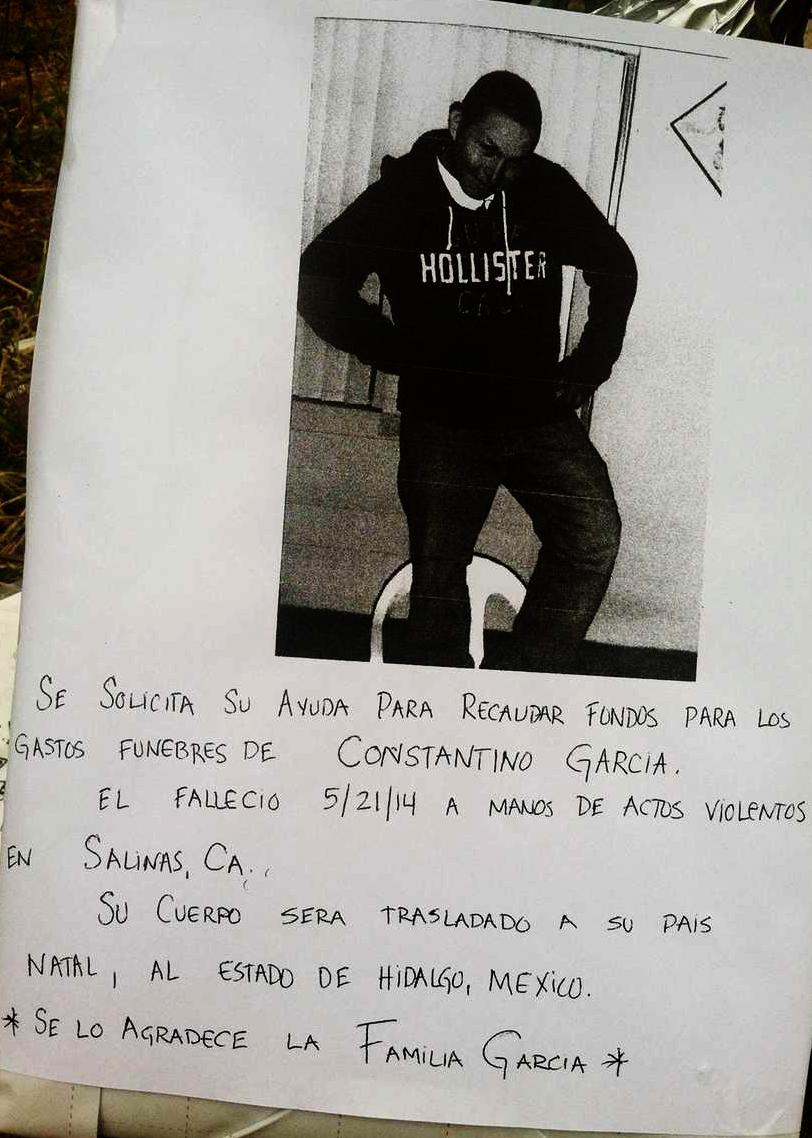 HOLLISTER
SE SOLICITA SU AYUDA PARA RECAUDAR FONDOS PARA LOS
GASTOS FUNEBRES DE CONSTANTINO GARCIA.
EL FALLECIO 5/21/14 A MANOS DE ACTOS VIOLENTOS
EN SALINAS, CA.
SU CUERPO SERA TRASLADADO A SU PAIS
NATAL, AL ESTADO DE HIDALGO, MEXICO.
* SE LO AGRADECE LA FAMILIA GARCIA *